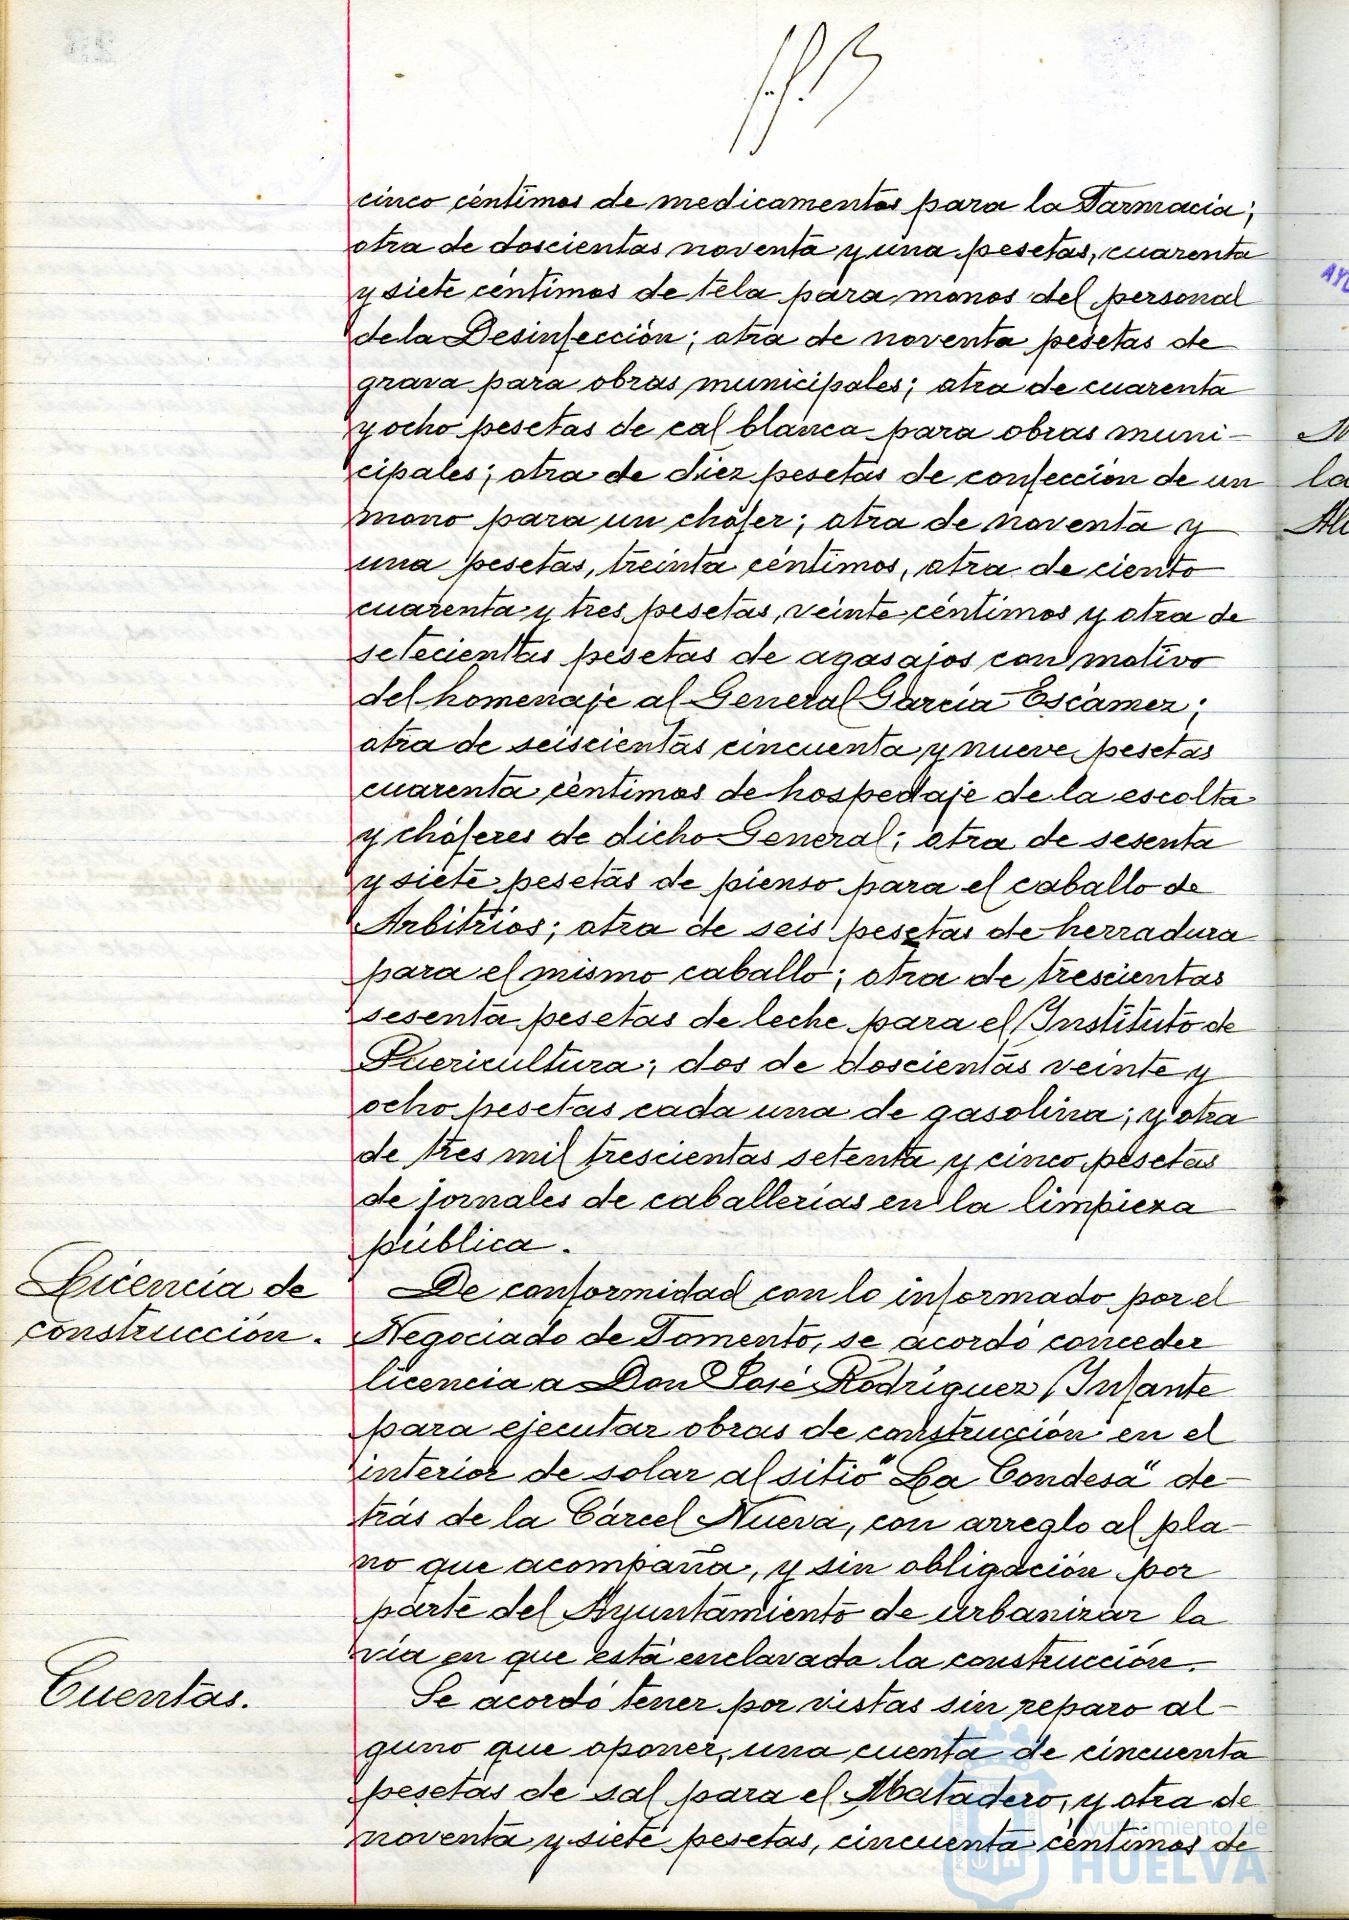 cinco céntimos de medicamentos para la Farmacia;
otra de doscientas noventa y una pesetas, cuarenta
y siete céntimos de tela para monos del personal
de la Desinfección; otra de noventa pesetas de
grava para obras municipales; otra de cuarenta
y ocho pesetas de cal blanca para obras muni-
cipales; otra de diez pesetas de confección de un
mono para un chófer; otra de noventa y
una pesetas, treinta céntimos, otra de ciento
cuarenta y tres pesetas, veinte céntimos y otra de
setecientas pesetas de agasajos con motivo
del homenaje al General García Escámez;
otra de seiscientas cincuenta y nueve pesetas
cuarenta céntimos de hospedaje de la escolta
y chóferes de dicho General; otra de sesenta
y siete pesetas de pienso para el caballo de
Arbitrios; otra de seis pesetas de herradura
para el mismo caballo; otra de trescientas
sesenta pesetas de leche para el Instituto de
Puericultura; dos de doscientas veinte y
ocho pesetas cada una de gasolina; y otra
de tres mil trescientas setenta y cinco pesetas
de jornales de caballerías en la limpieza
pública.
Licencia de
construcción.
De conformidad con lo informado por el
Negociado de Fomento, se acordó conceder
licencia a Don José Rodríguez Infante
para ejecutar obras de construcción en el
interior de solar al sitio "La Condesa" de-
trás de la Cárcel Nueva, con arreglo al pla-
no que acompaña, y sin obligación por
parte del Ayuntamiento de urbanizar la
vía en que está enclavada la construcción.
Cuentas.
Se acordó tener por vistas sin reparo al-
guno que oponer, una cuenta de cincuenta
pesetas de sal para el Matadero, y otra de
noventa y siete pesetas, cincuenta céntimos de
Ayuntamiento de
HUELVA
la